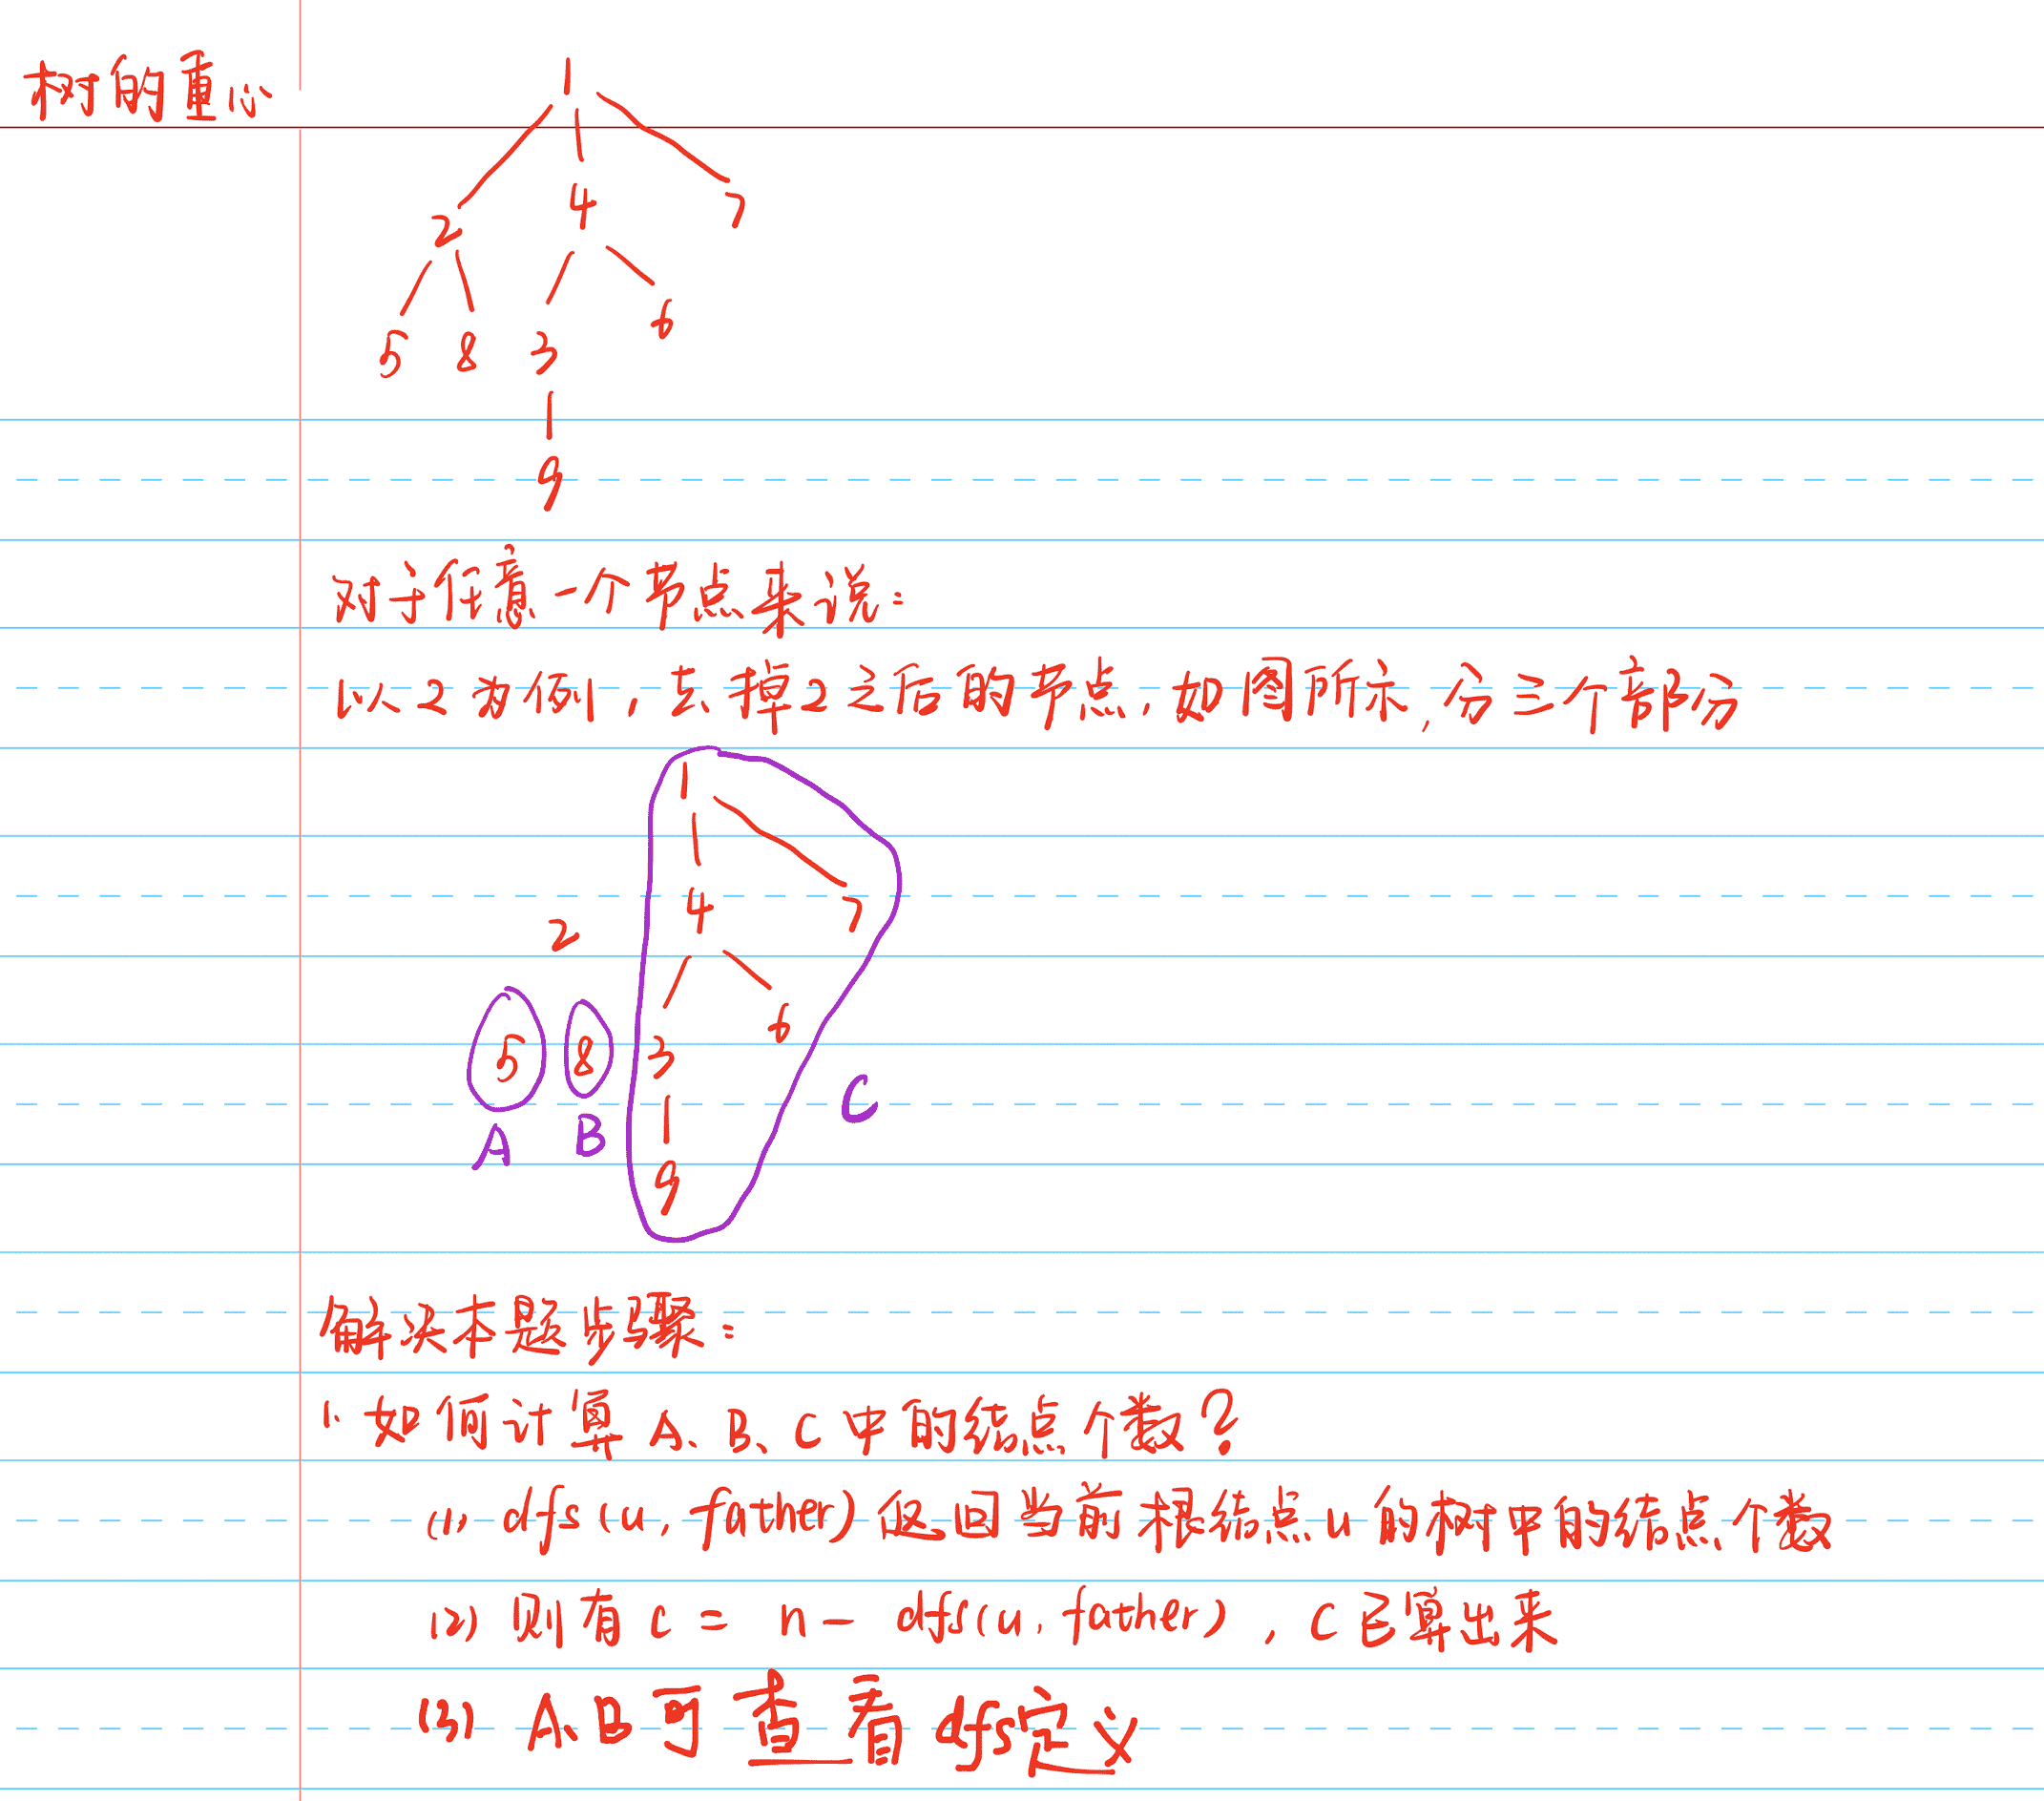 树的重心
1
2 4 7
5 8 3 6
9
对于任意一个节点来说:
以2为例,去掉2之后的节点,如图所示,分三个部分
1
4 7
2
5 8 3 6
A B C
9
解决本题步骤:
1. 如何计算A、B、C中的结点个数?
(1) dfs(u, father)返回当前根结点u的树中的结点个数
(2) 则有c = n - dfs(u, father), C已算出来
(3) A、B可查看dfs定义